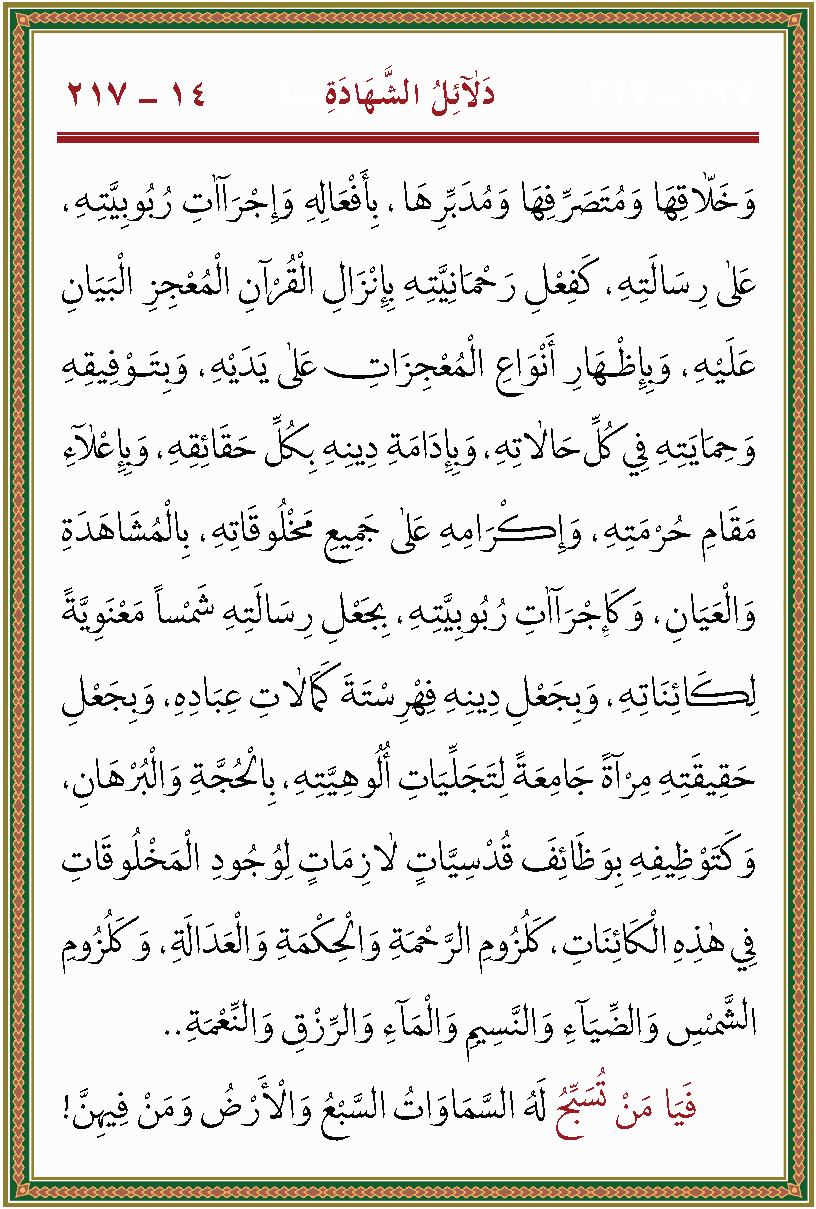 دَلَآئِلُ الشَّهَادَةِ ١٤ - ٢١٧
وَخَلَّاقِهَا وَمُتَصَرِّفِهَا وَمُدَبِّرِهَا ، بِأَفْعَالِهِ وَإِجْرَآاٰتِ رُبُوبِيَّتِهِ ،
عَلٰى رِسَالَتِهِ ، كَفِعْلِ رَحْمَانِيَّتِهِ بِإِنْزَالِ الْقُرْآنِ الْمُعْجِزِ الْبَيَانِ
عَلَيْهِ ، وَبِإِظْهَارِ أَنْوَاعِ الْمُعْجِزَاتِ عَلٰى يَدَيْهِ ، وَبِتَوْفِيقِهِ
وَحِمَايَتِهِ فِي كُلِّ حَالَاتِهِ ، وَبِإِدَامَةِ دِينِهِ بِكُلِّ حَقَائِقِهِ ، وَبِإِعْلَآءِ
مَقَامِ حُرْمَتِهِ ، وَإِكْرَامِهِ عَلٰى جَمِيعِ مَخْلُوقَاتِهِ ، بِالْمُشَاهَدَةِ
وَالْعَيَانِ ، وَكَإِجْرَآاٰتِ رُبُوبِيَّتِهِ ، بِجَعْلِ رِسَالَتِهِ شَمْساً مَعْنَوِيَّةً
لِكَائِنَاتِهِ ، وَبِجَعْلِ دِينِهِ فِهْرِسْتَةَ كَمَالَاتِ عِبَادِهِ ، وَبِجَعْلِ
حَقِيقَتِهِ مِرْآةً جَامِعَةً لِتَجَلِّيَاتِ أُلُوهِيَّتِهِ ، بِالْحُجَّةِ وَالْبُرْهَانِ ،
وَكَتَوْظِيفِهِ بِوَظَائِفَ قُدْسِيَّاتٍ لَازِمَاتٍ لِوُجُودِ الْمَخْلُوقَاتِ
فِي هٰذِهِ الْكَائِنَاتِ ، كَلُزُومِ الرَّحْمَةِ وَالْحِكْمَةِ وَالْعَدَالَةِ ، وَكَلُزُومِ
الشَّمْسِ وَالضِّيَآءِ وَالنَّسِيمِ وَالْمَآءِ وَالرِّزْقِ وَالنِّعْمَةِ..
فَيَا مَنْ تُسَبِّحُ لَهُ السَّمَاوَاتُ السَّبْعُ وَالْأَرْضُ وَمَنْ فِيهِنَّ!